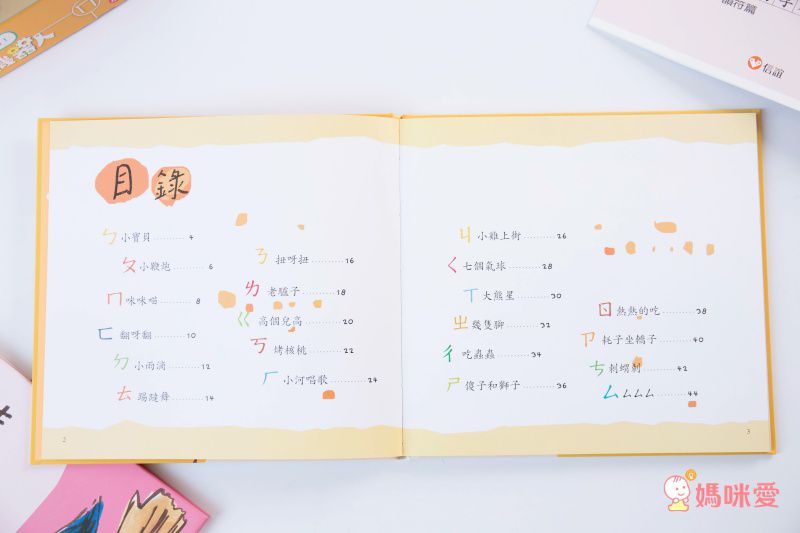 機器人
韻符篇
信誼
目錄
ㄅ 小寶貝 .......... 4
ㄆ 小鞭炮 .......... 6
ㄇ 咪咪喵 .......... 8
ㄈ 翻呀翻 .......... 10
ㄉ 小雨滴 .......... 12
ㄊ 踢躂舞 .......... 14
ㄋ 扭呀扭 .......... 16
ㄌ 老驢子 .......... 18
ㄍ 高個兒高 .......... 20
ㄎ 烤核桃 .......... 22
ㄏ 小河唱歌 .......... 24
2
ㄐ 小雞上街 .......... 26
ㄑ 七個氣球 .......... 28
ㄒ 大熊星 .......... 30
ㄓ 幾隻聊 .......... 32
ㄔ 吃蟲蟲 .......... 34
ㄕ 傻子和獅子 .......... 36
ㄖ 熱熱的吃 .......... 38
ㄗ 耗子坐轎子 .......... 40
ㄘ 刺蝟剃 .......... 42
ㄙ ㄙㄙㄙ .......... 44
3
媽咪愛